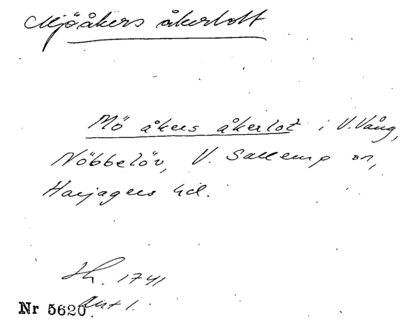 Mjöåkers åkerlott
Mö åkers åkerlot i V. Vång,
Nöbbelöv, V. Sallerup sn,
Harjagers hd.
Lh. 1741
Akt 1.
Nr 5620.